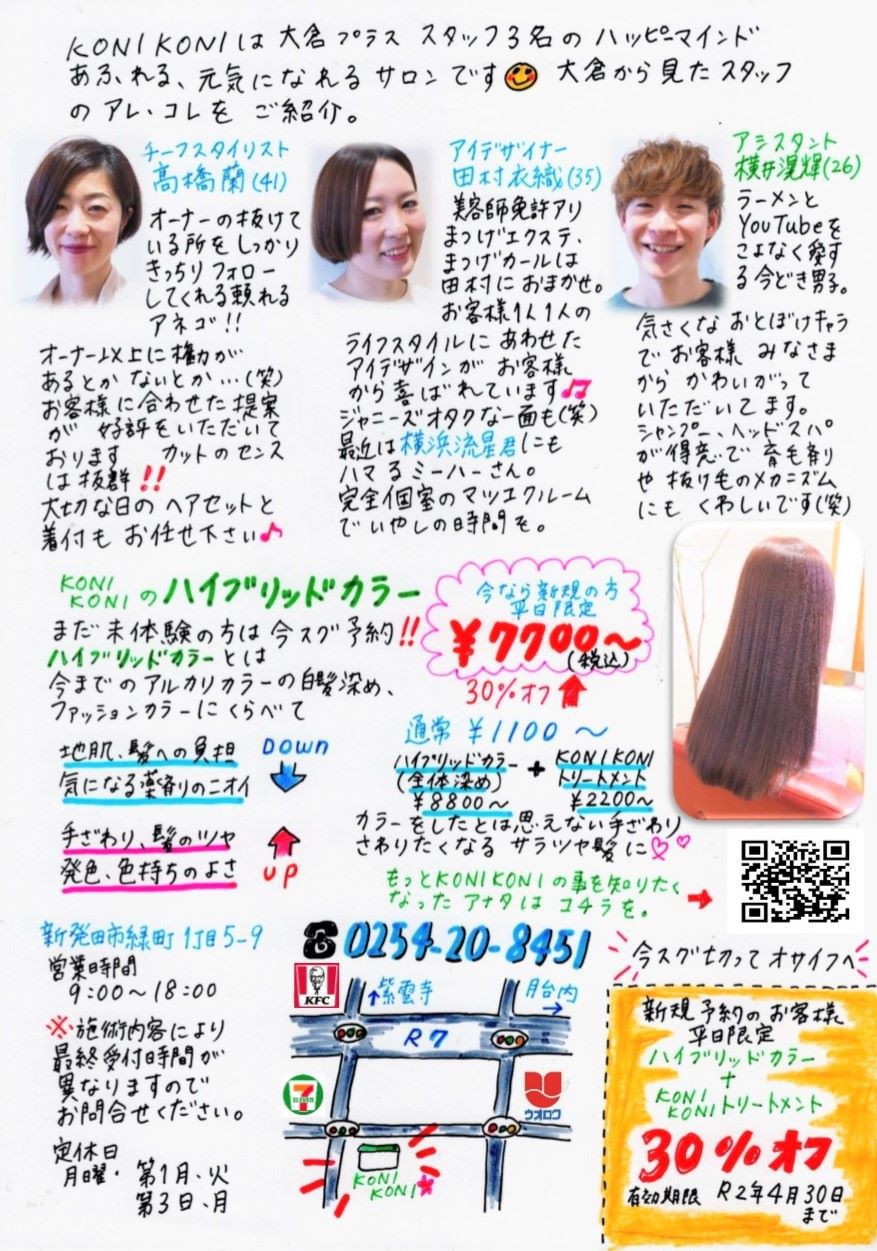 KONIKONIは大倉プラス スタッフ3名のハッピーマインド
あふれる、元気になれるサロンです 大倉から見たスタッフ
のアレ・コレをご紹介。
チーフスタイリスト
高橋蘭(41)
オーナーの抜けて
いる所をしっかり
きっちりフォロー
してくれる頼れる
アネゴ!!
オーナー以上に権力が
あるとかないとか…(笑)
お客様に合わせた提案
が好評をいただいて
おります カットのセンス
は抜群!!
大切な日のヘアセットと
着付もお任せ下さい♪
アイデザイナー
田村衣織(35)
美容師免許アリ
まつげエクステ、
まつげカールは
田村におまかせ。
お客様1人1人の
ライフスタイルにあわせた
アイデザインがお客様
から喜ばれています♫
ジャニーズオタクな一面も(笑)
最近は横浜流星君にも
ハマるミーハーさん。
完全個室のマツエクルーム
でいやしの時間を。
アシスタント
横井滉輝(26)
ラーメンと
YouTubeを
こよなく愛す
る今どき男子。
気さくなおとぼけキャラ
でお客様みなさま
からかわいがって
いただいてます。
シャンプー、ヘッドスパ
が得意で育毛剤
や抜け毛のメカニズム
にもくわしいです(笑)
KONI
KONIのハイブリッドカラー
まだ未体験の方は今スグ予約!!
ハイブリッドカラーとは
今までのアルカリカラーの白髪染め、
ファッションカラーにくらべて
地肌、髪への負担
気になる薬剤のニオイ
DOWN
手ざわり、髪のツヤ
発色、色持ちのよさ
UP
今なら新規の方
平日限定
¥7700~
(税込)
30%オフ
通常 ¥1100~
ハイブリッドカラー
(全体染め)
¥8800~
+
KONIKONI
トリートメント
¥2200~
カラーをしたとは思えない手ざわり
さわりたくなるサラツヤ髪に♡♡
もっとKONIKONIの事を知りたく
なったアナタはコチラを。
新発田市緑町1丁目5-9
営業時間
9:00~18:00
※施術内容により
最終受付時間が
異なりますので
お問合せください。
定休日
月曜・第1月、火
第3日、月
☎0254-20-8451
KFC
↑紫雲寺
胎内
→
R7
7
ELEVEN
ウオロク
KONI
KONI
今スグ切ってオサイフへ
新規予約のお客様
平日限定
ハイブリッドカラー
+
KONI
KONIトリートメント
30%オフ
有効期限 R2年4月30日
まで